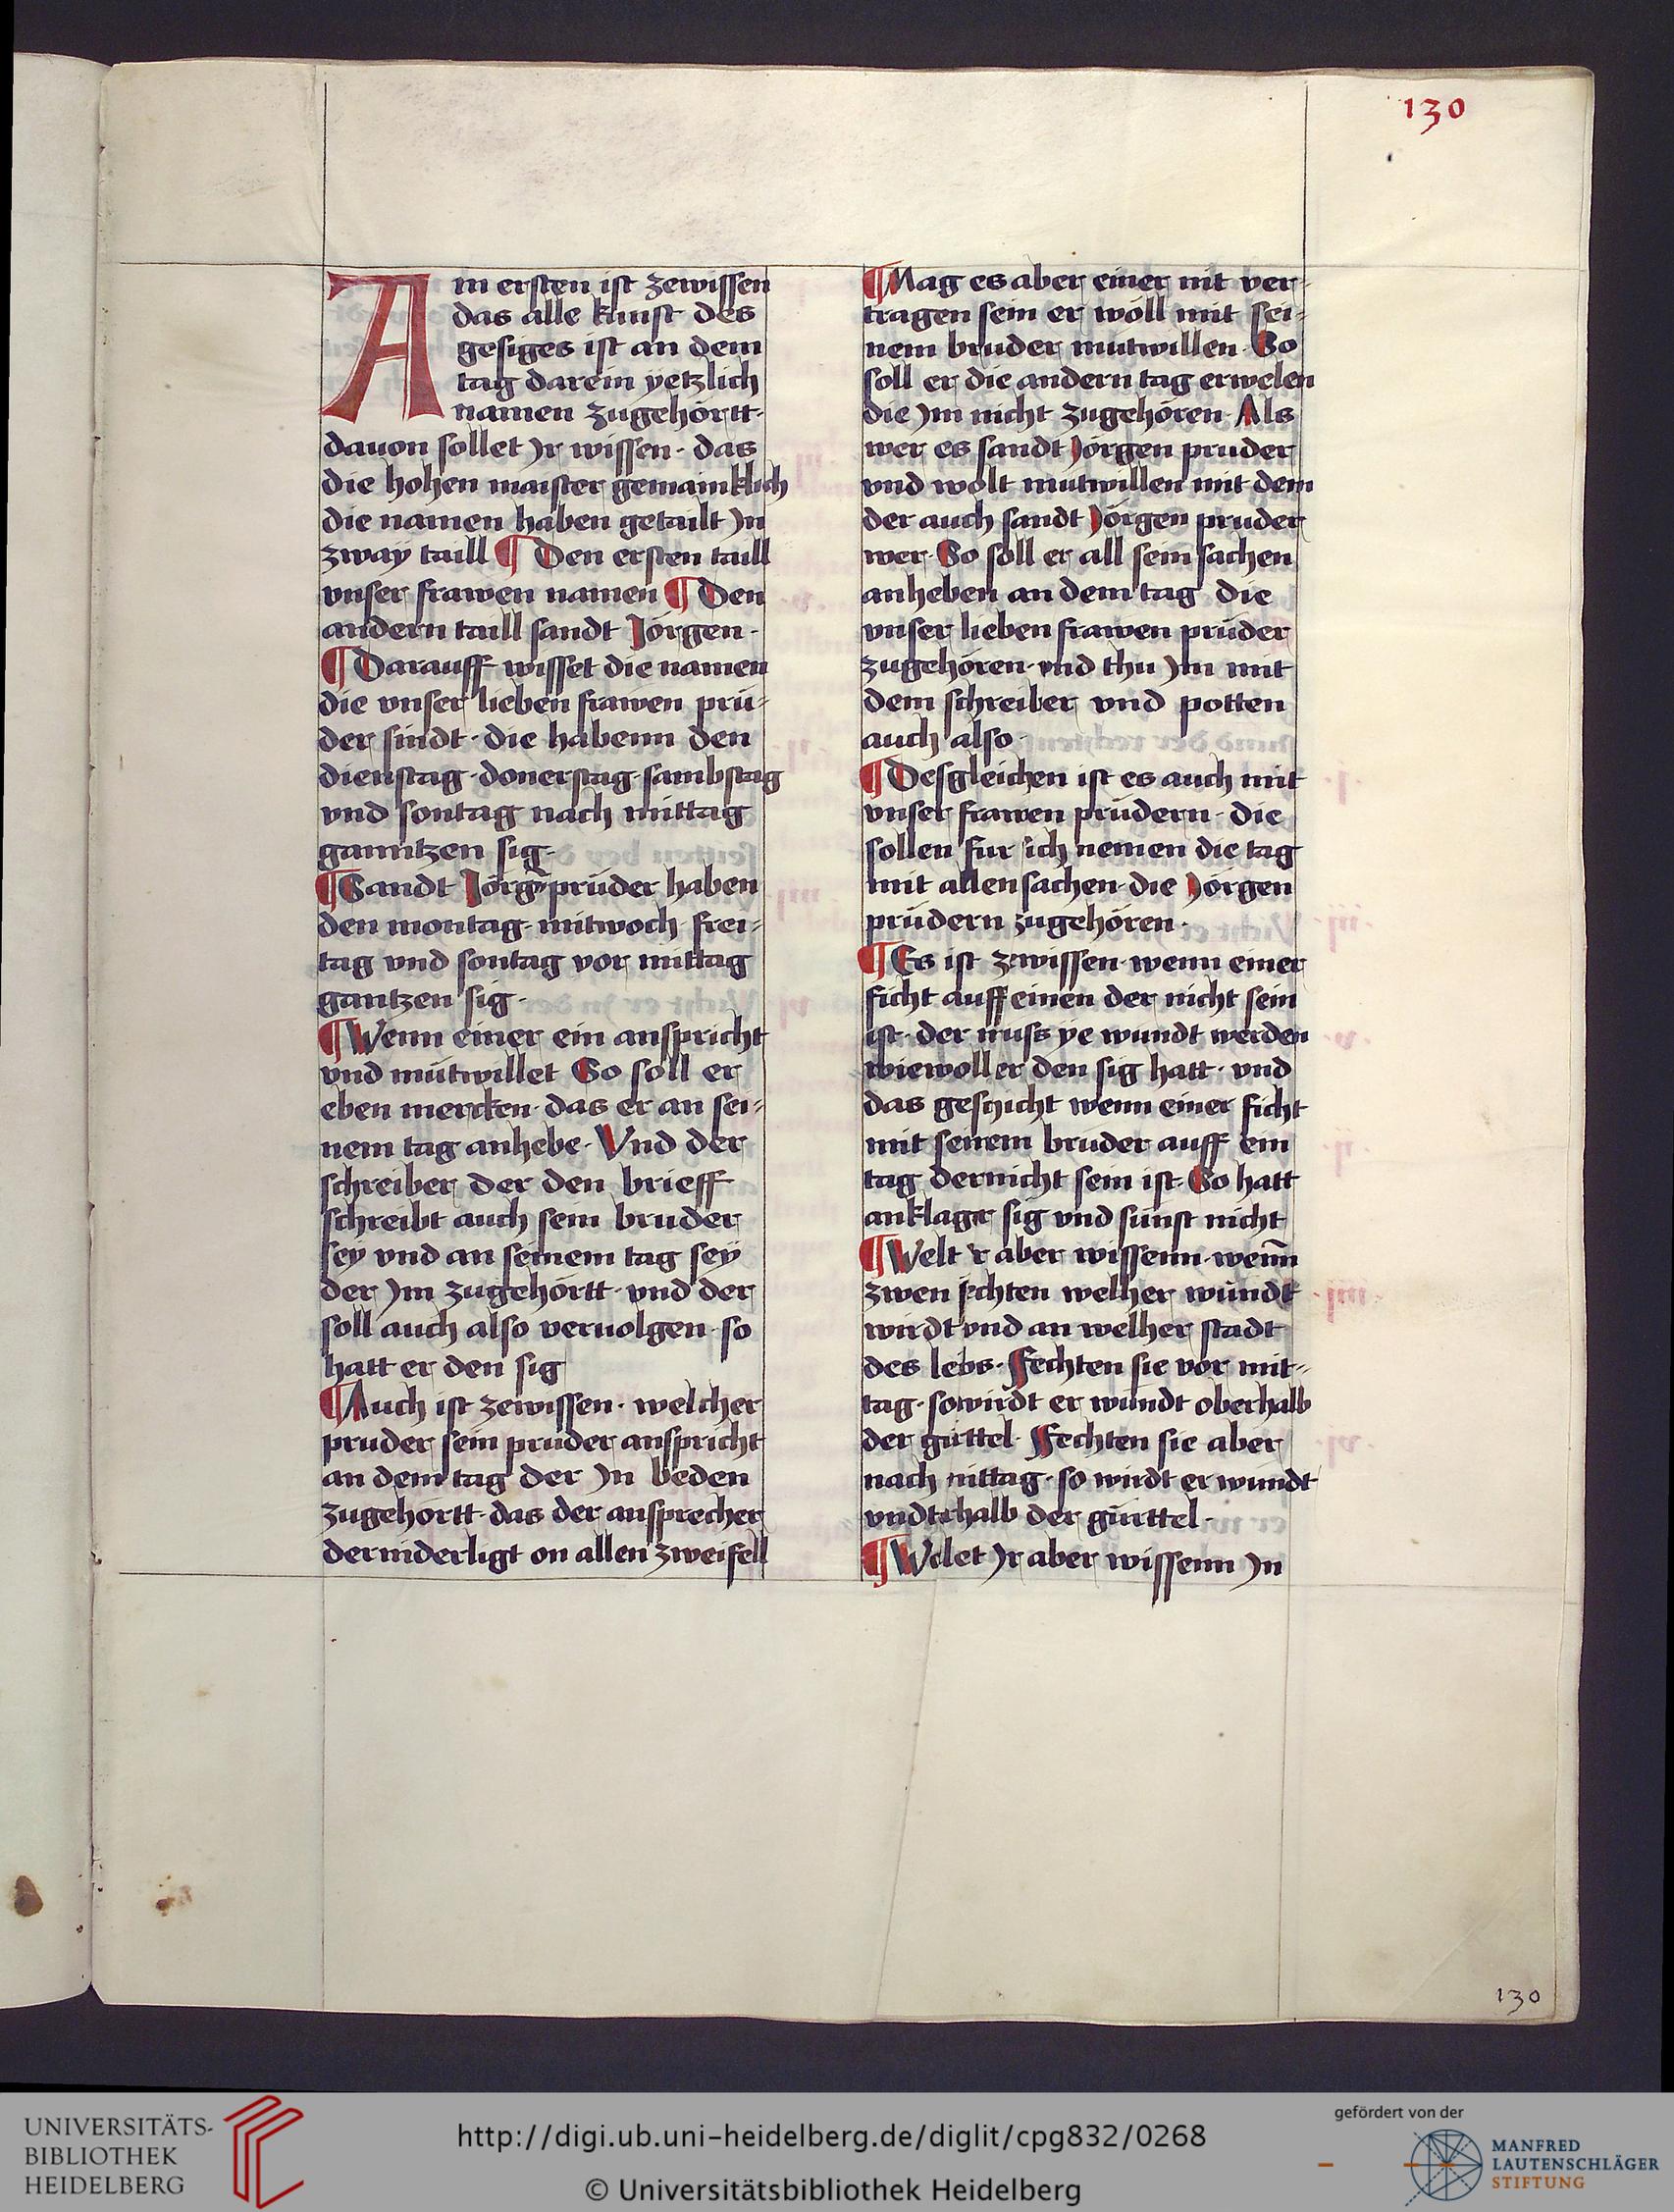 130
Am ersten ist zewissen
das alle kunst des
gesiges ist an dem
tag darein yetzlich
namen zugehörtt·
dauon sollet Jr wissen· das
die hohen maister gemainklich
die namen haben getailt Jn
zway taill ¶ Den ersten taill
vnser frawen namen ¶ Den
andern taill sandt Jörgen·
¶ Darauff wisset die namen
die vnser lieben frawen prü-
der sindt· die habenn den
dienstag· donerstag· sambstag
vnd sontag nach mittag
ganntzen sig·
¶ Sandt Jörgn prüder haben
den montag· mitwoch· frei-
tag vnd sontag vor mittag
gantzen sig·
¶ Wenn einer ein anspricht
vnd mütwillet So soll er
eben mercken· das er an sei-
nem tag anhebe· Vnd der
schreiber der den brieff
schreibt auch sein bruder
sey vnd an seinem tag sey
der Jm zugehörtt· vnd der
soll auch also veruolgen· so
hatt er den sig
¶ Auch ist zewissen· welcher
pruder sein pruder anspricht
an dem tag der Jn beden
zugehortt· das der ansprecher
derniderligt on allen zweifell
¶ Mag es aber einer nit ver-
tragen sein er wöll mit sei-
nem bruder mutwillen· So
soll er die andern tag erwelen
die Jm nicht zugehören· Als
wer es sandt Jörgen pruder
vnd wolt mutwillen mit dem
der auch sandt Jörgen pruder
wer· So soll er all sein sachen
anheben an dem tag die
vnser lieben frawen prüder
zugehören· vnd thu Jm mit
dem schreiber vnd potten
auch also·
¶ Desgleichen ist es auch mit
vnser frawen prüdern· die
sollen fur sich nemen die tag
mit allen sachen· die Jörgen
prüdern zugehören·
¶ Es ist zewissen· wenn einer
ficht auff einen der nicht sein
ist· der muss ye wundt werden
wiewoll er den sig hatt· vnd
das geschicht wenn einer ficht
mit seinem bruder auff ein
tag der nicht sein ist· So hatt
anklager sig vnd sünst nicht
¶ Welt Jr aber wissenn· wenn
zwen fechten welher wundt
wirdt vnd an welher stadt
des lebs· Fechten sie vor mit-
tag· so wirdt er wundt oberhalb
der gürttel· Fechten sie aber
nach mittag· so wirdt er wundt
vndterhalb der gürttel·
¶ Wolet Jr aber wissenn Jn
130
UNIVERSITÄTS-
BIBLIOTHEK
HEIDELBERG
http://digi.ub.uni-heidelberg.de/diglit/cpg832/0268
© Universitätsbibliothek Heidelberg
gefördert von der
MANFRED
LAUTENSCHLÄGER
STIFTUNG